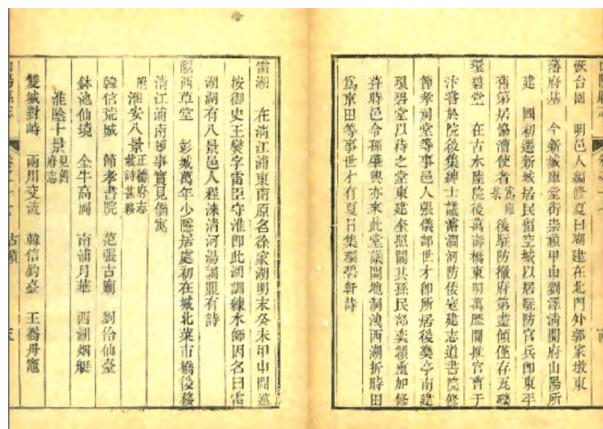 恢台園　明邑人編修夏曰瑚建在北門外郭家墩東
藩府基　今新城庫堂街崇禎甲申劉澤淸開府山陽所
建　國初遷新城居民留空城以居駐防官兵卽東平
舊第居協漕使者　後駐防撤府第盡傾僅存瓦礫
環碧堂　在古水陸院後萬壽橋東明萬歷間推官曹于
汴善於院後集紳士議濬澗河防倭寇建志道書院修
節孝祠堂等事邑人張儀部世才卽所居後葵亭南建
環碧堂以待之堂東建奎照閣其孫民部奕頴重加修
葺時邑令孫肇興亦來此堂議開地洞洩西湖折時田
爲京田等事世才有夏日集環碧軒詩
雷湖　在淸江浦東南原名徐家湖明末癸未甲申間巡
按御史王燮字雷臣守淮卽此湖訓練水師因名曰雷
湖湖有八景邑人程淶淸河湯調鼎有詩
隰西草堂　彭城萬年少隱居處初在城北菜市橋後移
淸江浦南頭事實見僑寓
附　淮安八景正德府志載詩甚穢
韓信荒城　節孝書院　范張古廟　劉伶仙臺
鉢池仙境　金牛高岡　南浦月華　西湖烟艇
淮陰十景見舊府志
雙城對峙　兩川交流　韓信釣臺　王喬丹竈
古蹟